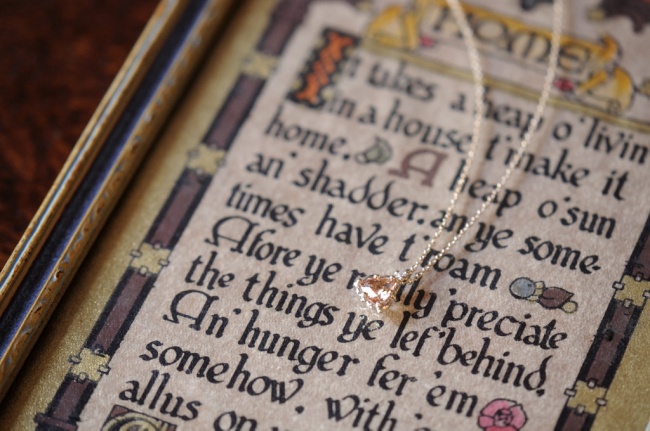 HOME
It takes a heap o' livin
in a house t' make it
home. A heap o' sun
an' shadder. an ye some-
times have t' roam
Afore ye really 'preciate
the things ye lef' behind,
An' hunger fer 'em
somehow, with
allus on